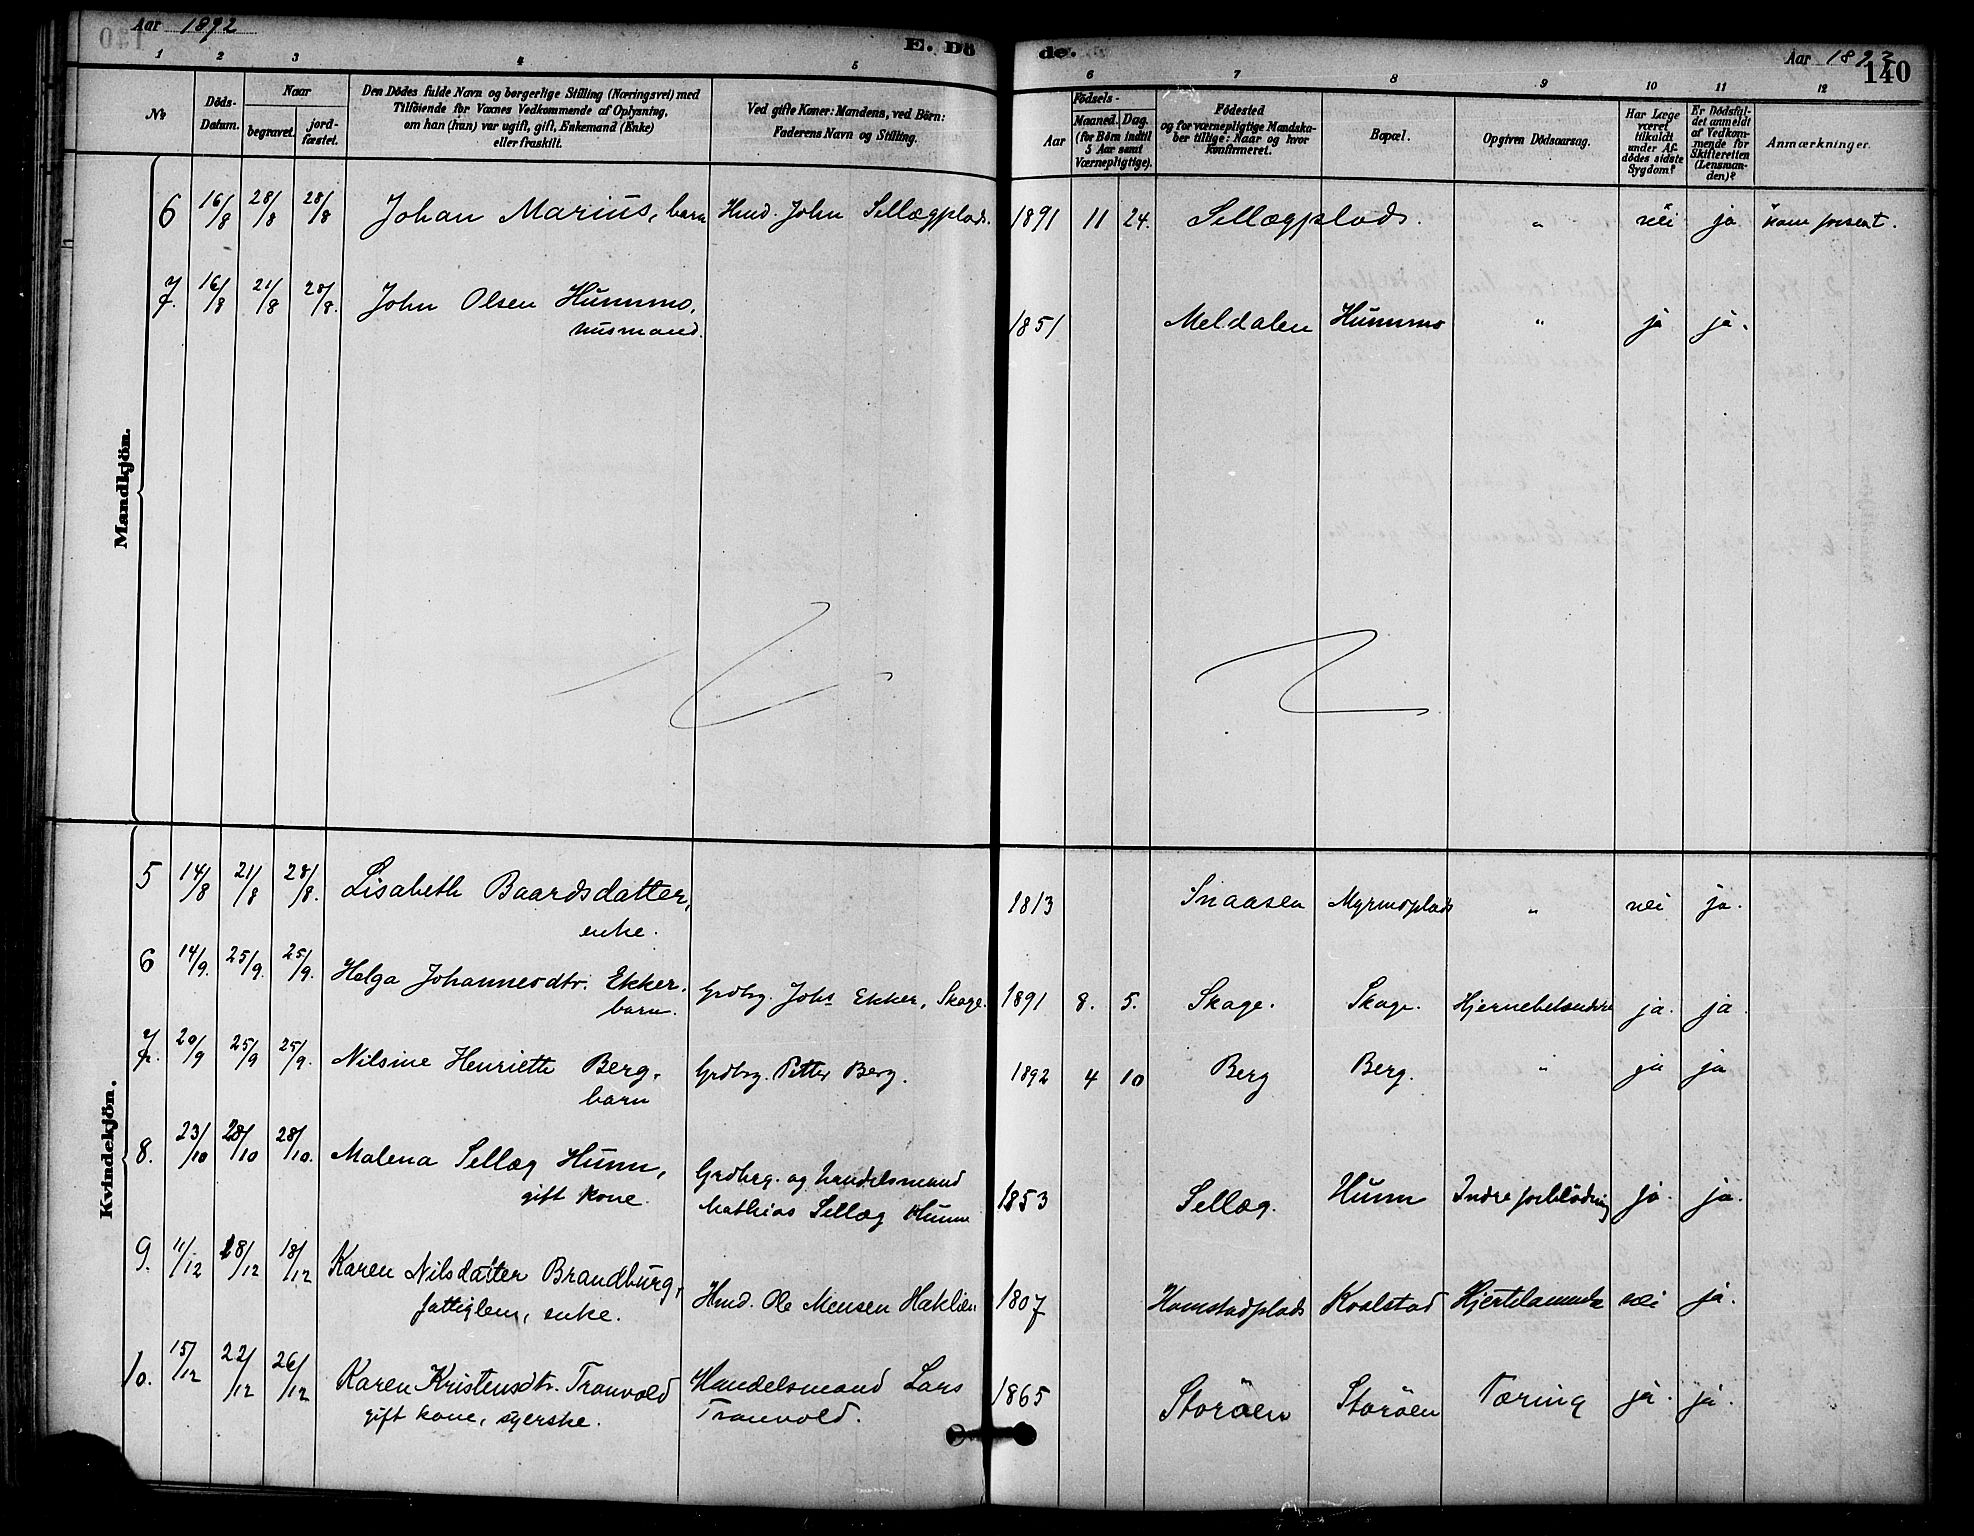 Aar 1892
E. Dö
de.
Aar 1892
140
1 2 3 4 5 6 7 8 9 10 11 12
No
Döds-Datum.
Naar
begravet.
jord-fæstet.
Den Dödes fulde Navn og borgerlige Stilling (Næringsvei) med
Tilföiende for Voxnes Vedkommende af Oplysning,
om han (hun) var ugift, gift, Enkemand (Enke)
eller fraskilt.
Ved gifte Koner: Mandens, ved Börn:
Faderens Navn og Stilling.
Födsels-
Aar
Maaned. Dag.
(for Börn indtil
5 Aar samt
Værnepligtige).
Födested
og for værnepligtige Mandska-
ber tillige: Naar og hvor
konfirmeret.
Bopæl.
Opgiven Dödsaarsag.
Har Læge
været
tilkaldt
under Af-
dödes sidste
Sygdom?
Er Dödsfal-
det anmeldt
af Vedkom-
mende for
Skifteretten
(Lensman-
den)?
Anmærkninger.
Mandkjön.
6 16/8 28/8 28/8 Johan Marius, barn Hmd. John Sellægplads. 1891 11 24. Sellægplads. " nei ja
7. 16/8 21/8 28/8. John Olsen Hunnmo,
husmand.
1851 Meldalen Hunnmo " ja ja.
Kvindekjön.
5 14/8 21/8 28/8. Lisabeth Baardsdatter,
enke.
1813 Snaasen Myrmoplads " nei ja.
6 14/9. 25/9. 25/9. Helga Johannesdtr. Ekker.
barn.
Grdbrg. Johs Ekker, Skage. 1891 8. 5. Skage. Skage. ja. ja
7. 20/9 25/9 25/9. Nilsine Henriette Berg.
barn
Grdbrg. Petter Berg. 1892 4 10 Berg Berg. " ja ja
8. 23/10 28/10 28/10. Malena Sellæg Hunn,
gift kone.
Grdbrg. og handelsmand
Mathias Sellæg Hunn
1853 Sellæg. Hunn Indre forblödning ja. ja.
9. 11/12 18/12 18/12 Karen Nilsdatter Brandburg,
fattiglem, enke.
Hmd. Ole Mensen Haklien 1807 Komstadplads Koalstad nei ja.
10. 15/12 22/12 26/12 Karen Kristensdtr. Tranvold
gift kone, syerske.
Handelsmand Lars
Tranvold.
1865 Storöen Storöen Tæring ja. ja.